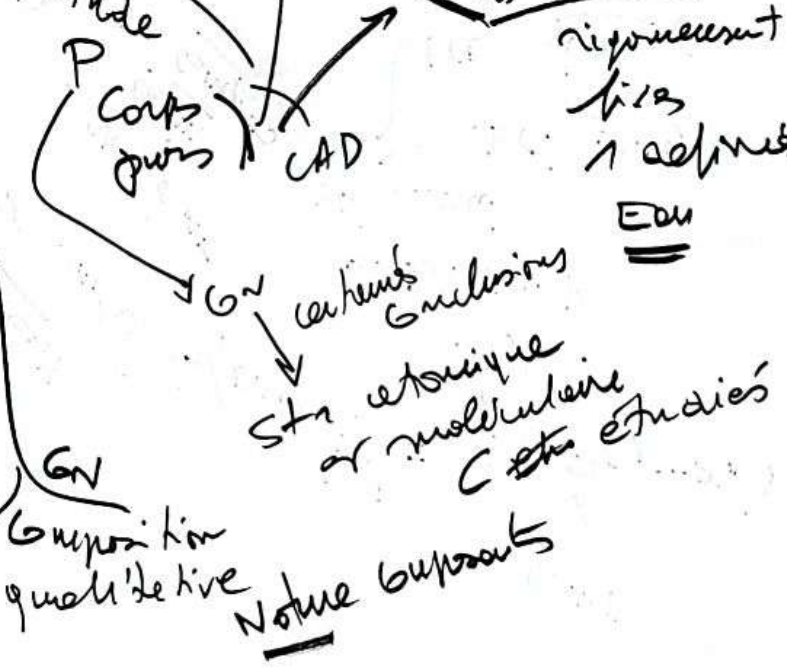 P
Corps
purs
CAD
rigoureusement
fixes
1 definies
Eau
GN
certaines
Conclusions
Str atomique
or moléculaire
C étudiés
GN
Composition
qualitative
Nature Composants